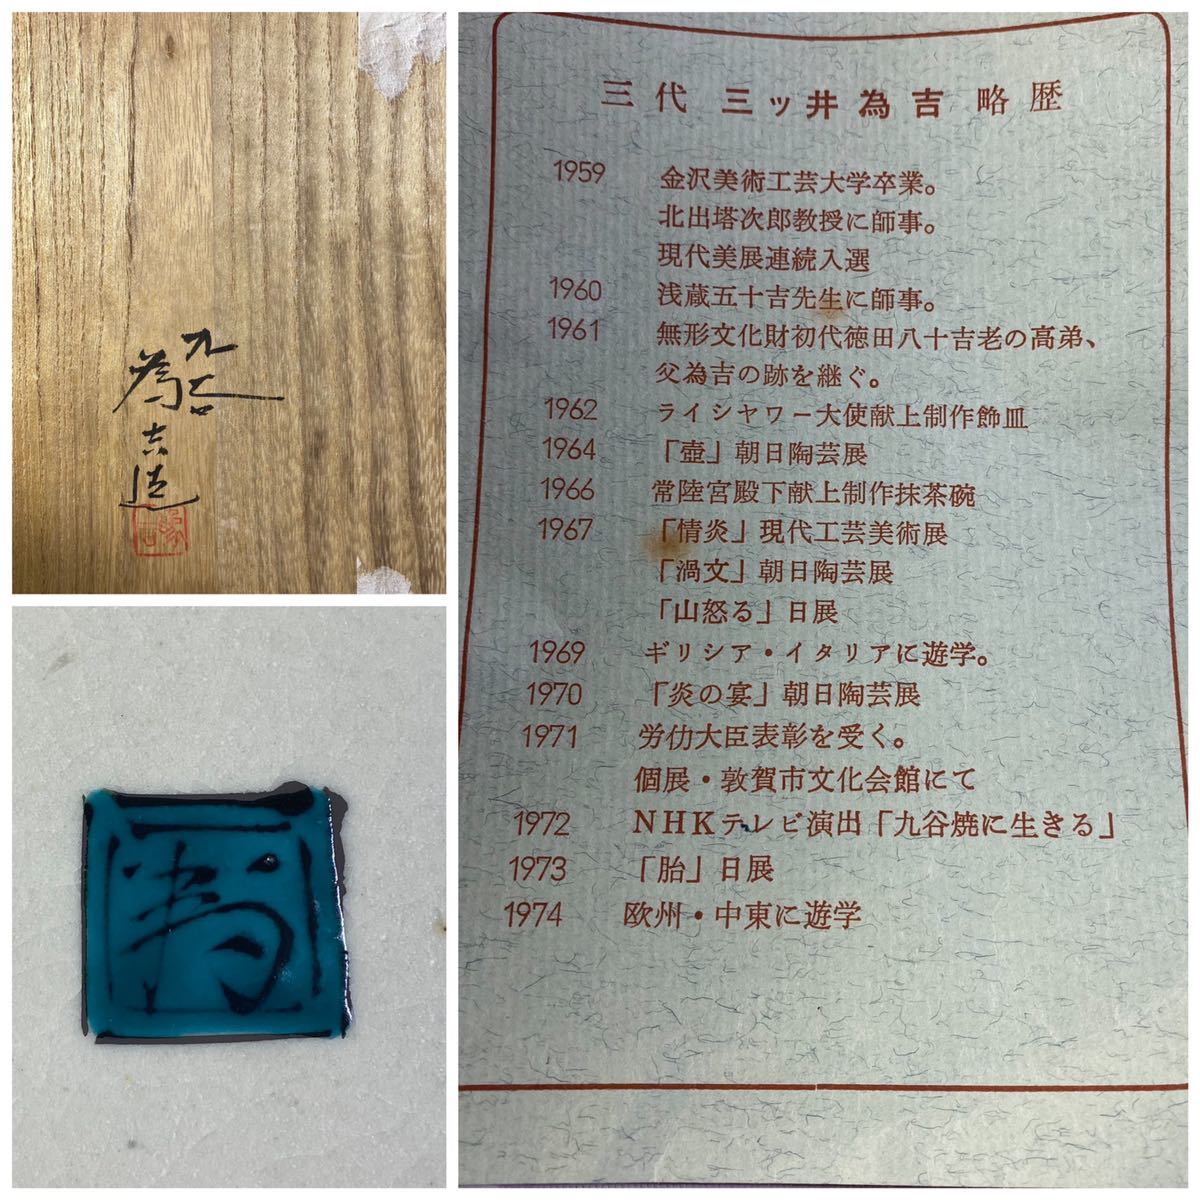 九谷
為吉造
為吉
寿
三代 三ッ井為吉 略歴
1959 金沢美術工芸大学卒業。
北出塔次郎教授に師事。
現代美展連続入選
1960 浅蔵五十吉先生に師事。
1961 無形文化財初代徳田八十吉老の高弟、
父為吉の跡を継ぐ。
1962 ライシャワー大使献上制作飾皿
1964 「壺」朝日陶芸展
1966 常陸宮殿下献上制作抹茶碗
1967 「情炎」現代工芸美術展
「渦文」朝日陶芸展
「山怒る」日展
1969 ギリシア・イタリアに遊学。
1970 「炎の宴」朝日陶芸展
1971 労仂大臣表彰を受く。
個展・敦賀市文化会館にて
1972 NHKテレビ演出「九谷焼に生きる」
1973 「胎」日展
1974 欧州・中東に遊学